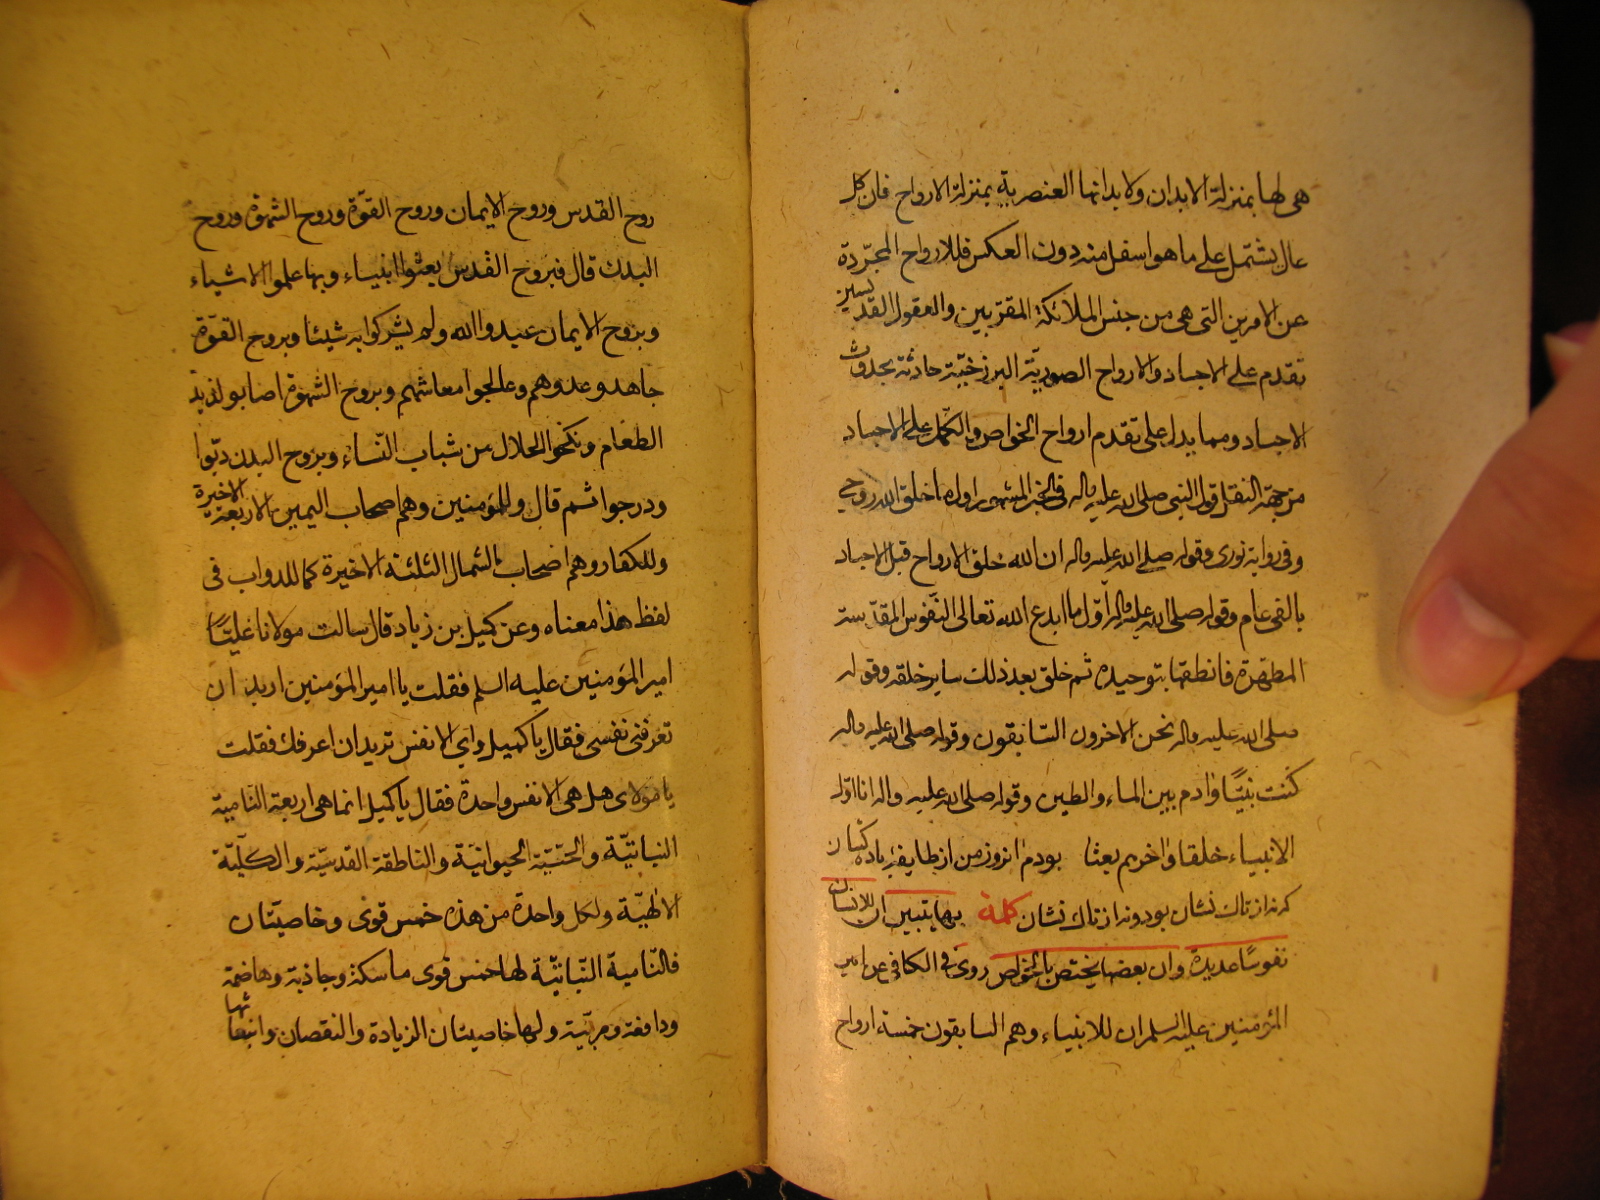 هی لها بمنزلة الابدان ولابدانها العنصریة بمنزلة الارواح فان کل
عال یشتمل علی ما هو اسفل منه دون العکس فللارواح المجرّدة
عن الامرین التی هی من جنس الملائکة المقرّبین والعقول القدسین
تقدم علی الاجساد والارواح الصوریّة البرزخیّة حادثة بحدوث
الاجساد ومما یدل علی تقدم ارواح الخواص والکمّل علی الاجساد
من جهة النقل قول النبی صلی الله علیه واله فی الخبر المشهور اول ما خلق الله روحی
وفی روایة نوری وقوله صلی الله علیه واله ان الله خلق الارواح قبل الاجساد
بالفی عام وقوله صلی الله علیه واله اوّل ما ابدع الله تعالی النّفوس المقدّسة
المطهّرة فانطقها بتوحیده ثم خلق بعد ذلک سایر خلقه وقوله
صلی الله علیه واله نحن الاخرون السّابقون وقوله صلی الله علیه واله
کنت نبیًّا وادم بین الماء والطین وقوله صلی الله علیه واله انا اوّل
الانبیاء خلقا واخرهم بعثا بودم انروز من از طایفه باده کشان
که نه از تاک نشان بود و نه از تاک نشان کلمة بها یتبین ان للانسان
نفوسًا عدیدة وان بعضها یختص بالخواص روی فی الکافی عن امیر
المؤمنین علیه السلم ان للانبیاء وهم السابقون خمسة ارواح
روح القدس وروح الایمان وروح القوّة وروح الشهوة وروح
البدن قال فبروح القدس بعثوا انبیاء وبها علموا الاشیاء
وبروح الایمان عبدوا الله ولم یشرکوا به شیئا وبروح القوّة
جاهدو عدوهم وعالجوا معاشهم وبروح الشهوة اصابو لذیذ
الطعام ونکحوا الحلال من شباب النّساء وبروح البدن دبّوا
ودرجوا ثم قال وللمؤمنین وهم اصحاب الیمین الاربعة الاخیرة
وللکفار وهم اصحاب الشمال الثلثة الاخیرة کما للدواب فی
لفظ هذا معناه وعن کمیل بن زیاد قال سالت مولانا علیًّا
امیر المؤمنین علیه السلم فقلت یا امیر المؤمنین ارید ان
تعرفنی نفسی فقال یا کمیل وای الانفس ترید ان اعرفک فقلت
یا مولای هل هی الا نفس واحدة فقال یا کمیل انما هی اربعة النّامیة
النباتیّة والحسّیّة الحیوانیّة والناطقة القدسیّة والکلّیّة
الالهیّة ولکل واحدة من هذه خمس قوی وخاصیّتان
فالنّامیة النّباتیّة لها خمس قوی ماسکة وجاذبة وهاضمة
ودافعة ومربّیة ولها خاصیتان الزیادة والنقصان وانبعاثها